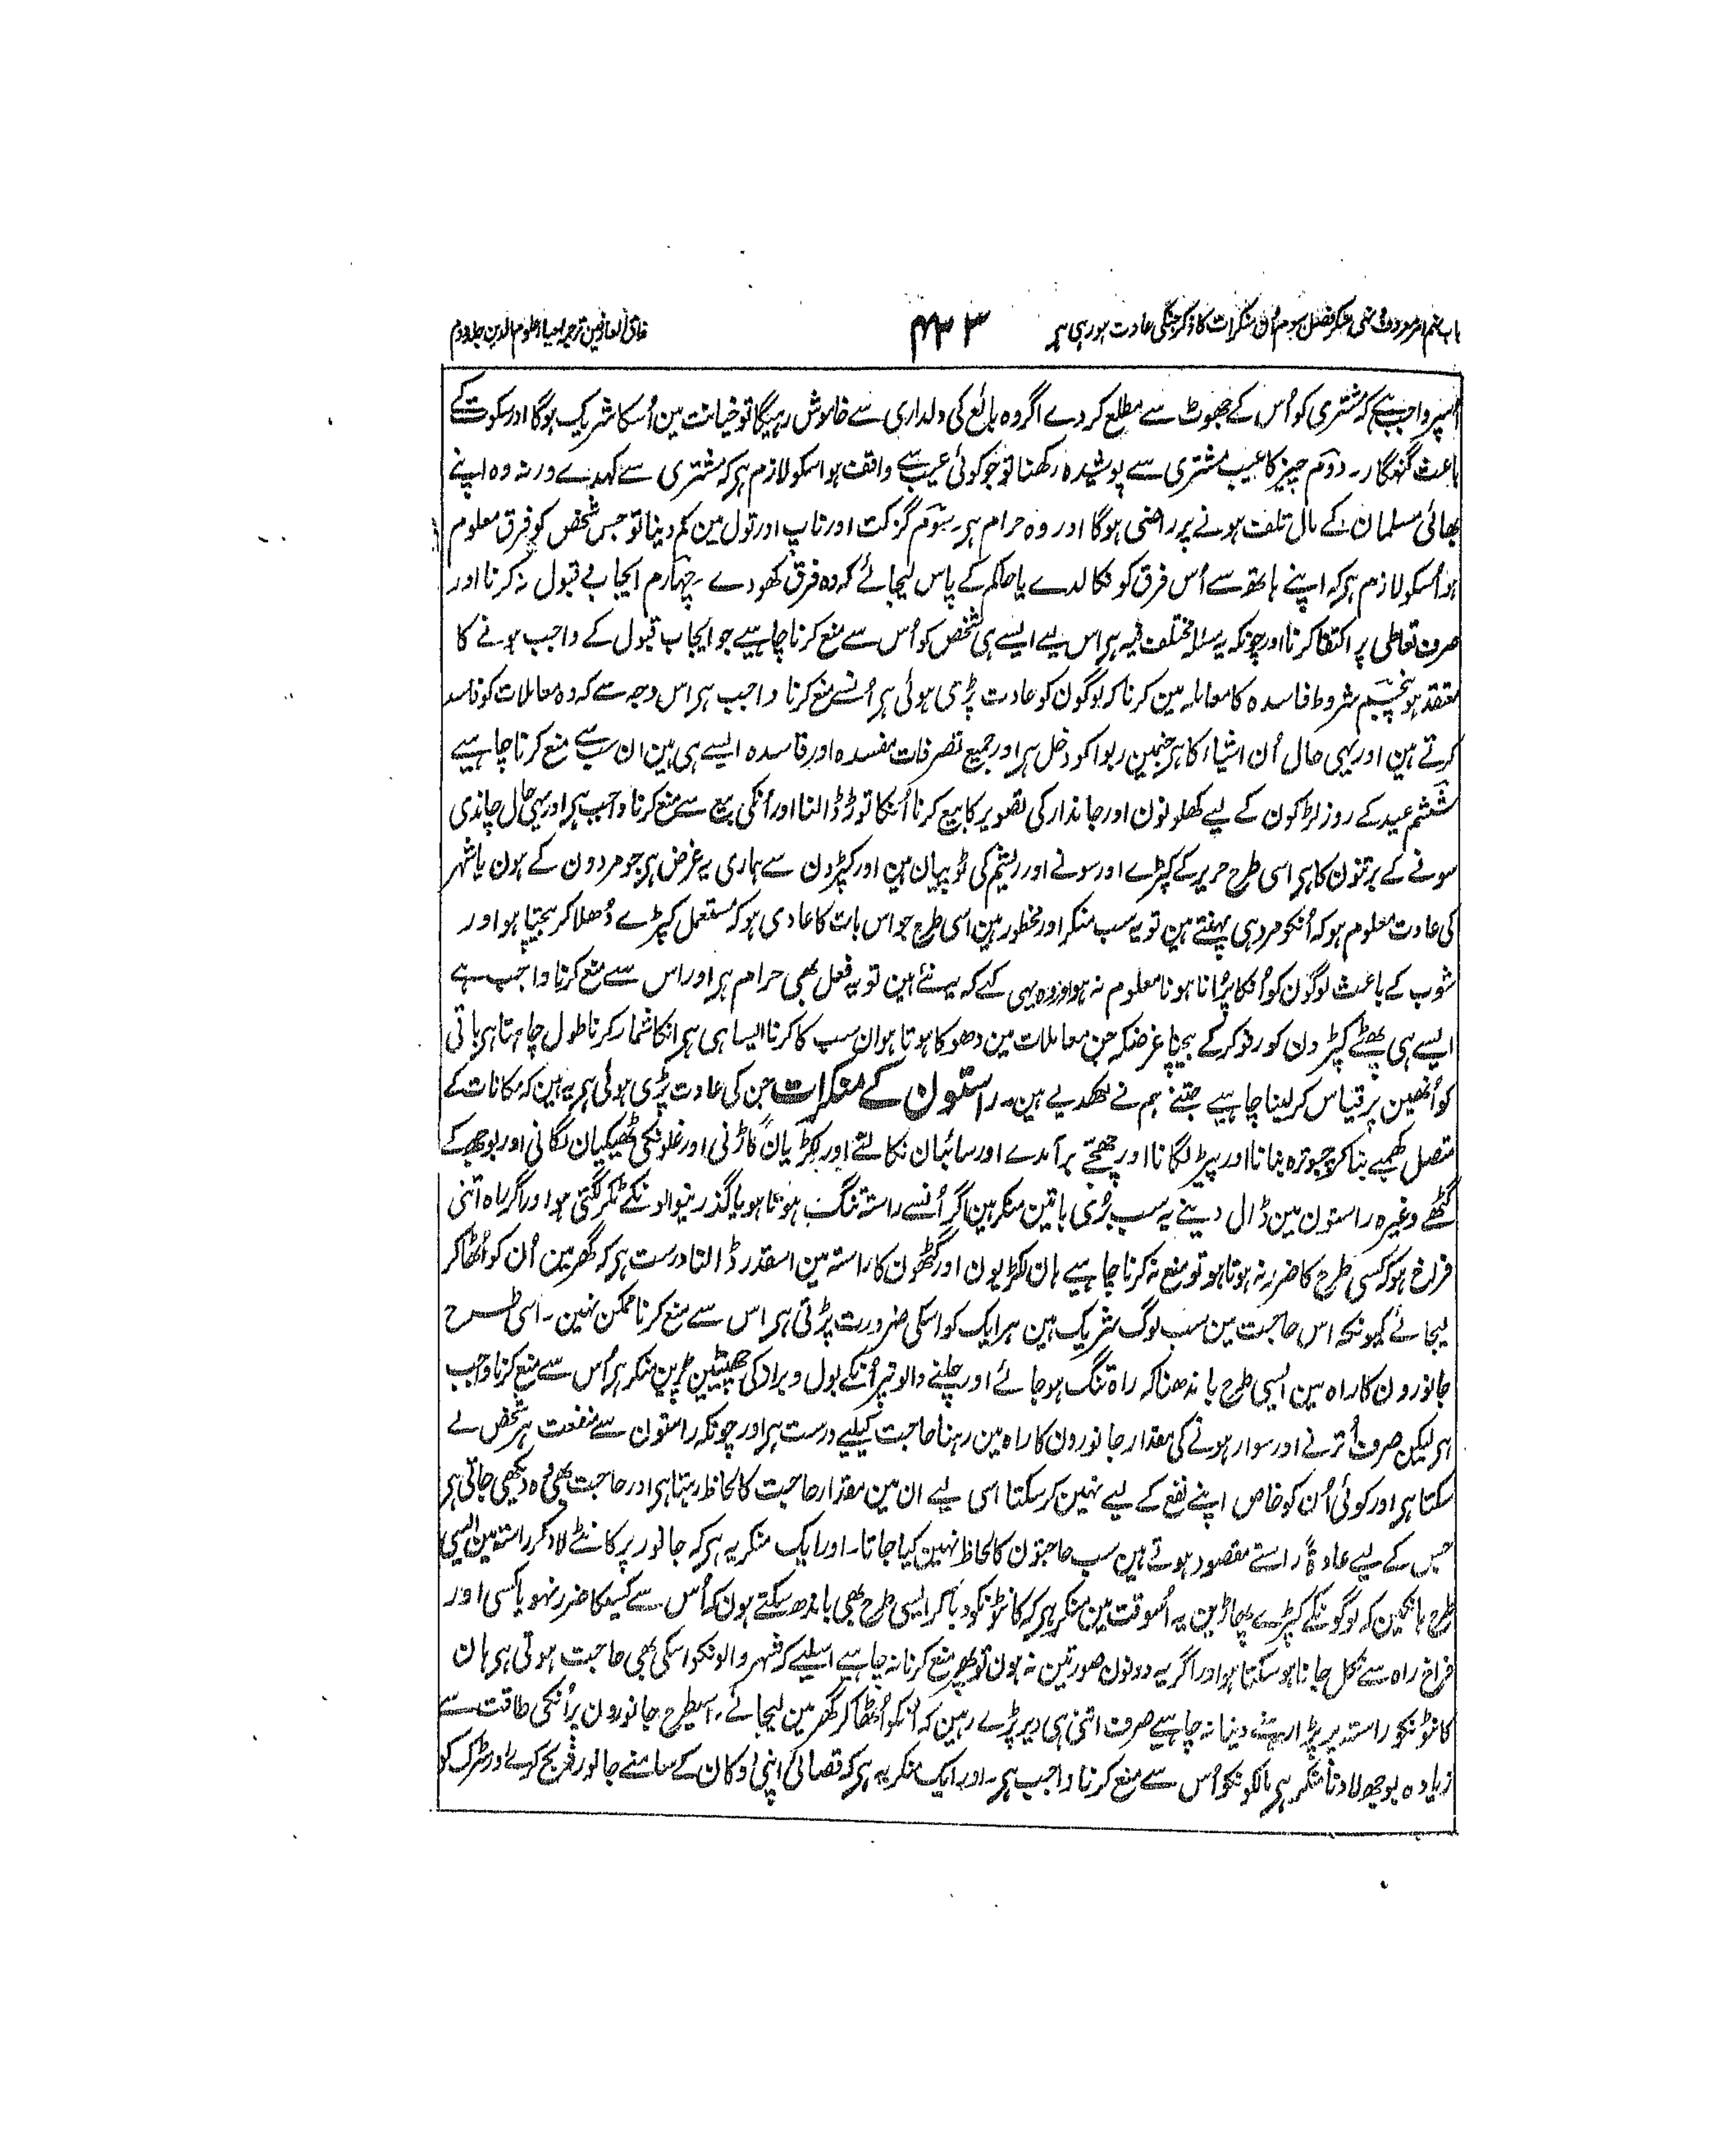 باب نہم امر معروف و نہی منکر فصل سوم اُن منکرات کا ذکر جنکی عادت ہو رہی ہے
۴۳۳
مذاق العارفین ترجمہ احیاء علوم الدین جلد دوم
اُسپر واجب ہے کہ مشتری کو اُس کے جھوٹ سے مطلع کر دے اگر وہ بائع کی دلداری سے خاموش رہیگا تو خیانت مین اُسکا شریک ہوگا اور سکوت کے
باعث گنہگار۔ دوّم چیز کا عیب مشتری سے پوشیدہ رکھنا تو جو کوئی عیب سے واقف ہو اسکو لازم ہی کہ مشتری سے کہدے ورنہ وہ اپنے
بھائی مسلمان کے مال تلف ہونے پر راضی ہوگا اور وہ حرام ہی۔ سوّم گزکت اور ناپ اور تول مین کم دینا تو جس شخص کو فرق معلوم
ہو اُسکو لازم ہی کہ اپنے ہاتھ سے اُس فرق کو نکالدے یا حاکم کے پاس لیجائے کہ وہ فرق کھو دے۔ چہارم ایجاب قبول نہ کرنا اور
صرف تعاطی پر اکتفا کرنا اور چونکہ یہ مسئلہ مختلف فیہ ہی اس لیے ایسے ہی شخص کو اُس سے منع کرنا چاہیے جو ایجاب قبول کے واجب ہونے کا
معتقد ہو پنجم شروط فاسدہ کا معاملہ مین کرنا کہ لوگون کو عادت پڑی ہوئی ہی اُنسے منع کرنا واجب ہی اس وجہ سے کہ وہ معاملات کو فاسد
کرتے ہین اور یہی حال اُن اشیاء کا ہی جنمین ربوا کو دخل ہی اور جمیع تصرفات مفسدہ اور فاسدہ ایسے ہی ہین ان سب سے منع کرنا چاہیے
ششم عید کے روز لڑکون کے لیے کھلونون اور جاندار کی تصویر کا بیع کرنا اُنکا توڑ ڈالنا اور اُنکی بیع سے منع کرنا واجب ہی اور یہی حال چاندی
سونے کے برتنون کا ہی اسی طرح حریر کے کپڑے اور سونے اور ریشم کی ٹوپیان ہین اور کپڑون سے ہماری یہ غرض ہی جو مردون کے ہون یا شہر
کی عادت معلوم ہو کہ اُنکو مرد ہی پہنتے ہین تو یہ سب منکر اور محظور ہین اسی طرح جو اس بات کا عادی ہو کہ مستعمل کپڑے دُھلا کر بیچتا ہو اور
شوب کے باعث لوگون کو اُنکا پُرانا ہونا معلوم نہ ہو اور وہ یہی کہے کہ یہ نئے ہین تو یہ فعل بھی حرام ہی اور اس سے منع کرنا واجب ہے
ایسے ہی پھٹے کپڑون کو رفو کر کے بیچنا غرضکہ جن معاملات مین دھوکا ہوتا ہو ان سب کا کرنا ایسا ہی ہی انکا شمار کرنا طول چاہتا ہی باقی
کو اُنھین پر قیاس کر لینا چاہیے جتنے ہم نے لکھدیے ہین۔ راستون کے منکرات جن کی عادت پڑی ہوئی ہی یہ ہین کہ مکانات کے
متصل کھمبے بنا کر چبوترہ بنانا اور پیڑ لگانا اور چھجے برآمدے اور سائبان نکالنے اور لکڑیان گاڑنی اور غلونکی ٹھیکیان لگانی اور بوجھ کے
گٹھے وغیرہ راستون مین ڈال دینے یہ سب بُری باتین منکر ہین اگر اُنسے راستہ تنگ ہوتا ہو یا گذرنیوالونکے ٹکر لگتی ہو اور اگر راہ اتنی
فراخ ہو کہ کسی طرح کا ضرر نہ ہوتا ہو تو منع نہ کرنا چاہیے ہان لکڑیون اور گٹھون کا راستہ مین اسقدر ڈالنا درست ہی کہ گھر مین اُن کو اُٹھا کر
لیجائے کیونکہ اس حاجت مین سب لوگ شریک ہین ہر ایک کو اسکی ضرورت پڑتی ہی اس سے منع کرنا ممکن نہین۔ اسی طرح
جانورون کا راہ مین ایسی طرح باندھنا کہ راہ تنگ ہو جائے اور چلنے والونپر اُنکے بول و براز کی چھینٹین پڑین منکر ہی اُس سے منع کرنا واجب
ہی لیکن صرف اُترنے اور سوار ہونے کی مقدار جانورون کا راہ مین رہنا حاجت کیلیے درست ہی اور چونکہ راستون سے منفعت ہر شخص لے
سکتا ہی اور کوئی اُن کو خاص اپنے نفع کے لیے نہین کر سکتا اسی لیے ان مین مقدار حاجت کا لحاظ رہتا ہی اور حاجت بھی وہ دیکھی جاتی ہی
جس کے لیے عادۃً راستے مقصود ہوتے ہین سب حاجتون کا لحاظ نہین کیا جاتا۔ اور ایک منکر یہ ہی کہ جانور پر کانٹے لاد کر راستہ مین ایسی
طرح ہانکین کہ لوگونکے کپڑے پھاڑین یہ اُسوقت مین منکر ہی کہ کانٹونکو دبا کر ایسی طرح بھی باندھ سکتے ہون کہ اُس سے کسیکا ضرر نہو یا کسی اور
فراخ راہ سے نکل جانا ہو سکتا ہو اور اگر یہ دونون صورتین نہ ہون تو پھر منع کرنا نہ چاہیے اسلیے کہ شہر والونکو اسکی بھی حاجت ہوتی ہی ہان
کانٹونکو راستہ پر پڑا رہنے دینا نہ چاہیے صرف اتنی ہی دیر پڑے رہین کہ اُنکو اُٹھا کر گھر مین لیجائے۔ اسیطرح جانورون پر اُنکی طاقت سے
زیادہ بوجھ لادنا منکر ہی مالکونکو اُس سے منع کرنا واجب ہی۔ اور ایک منکر یہ ہی کہ قصائی اپنی دوکان کے سامنے جانور ذبح کرے اور سڑک کو